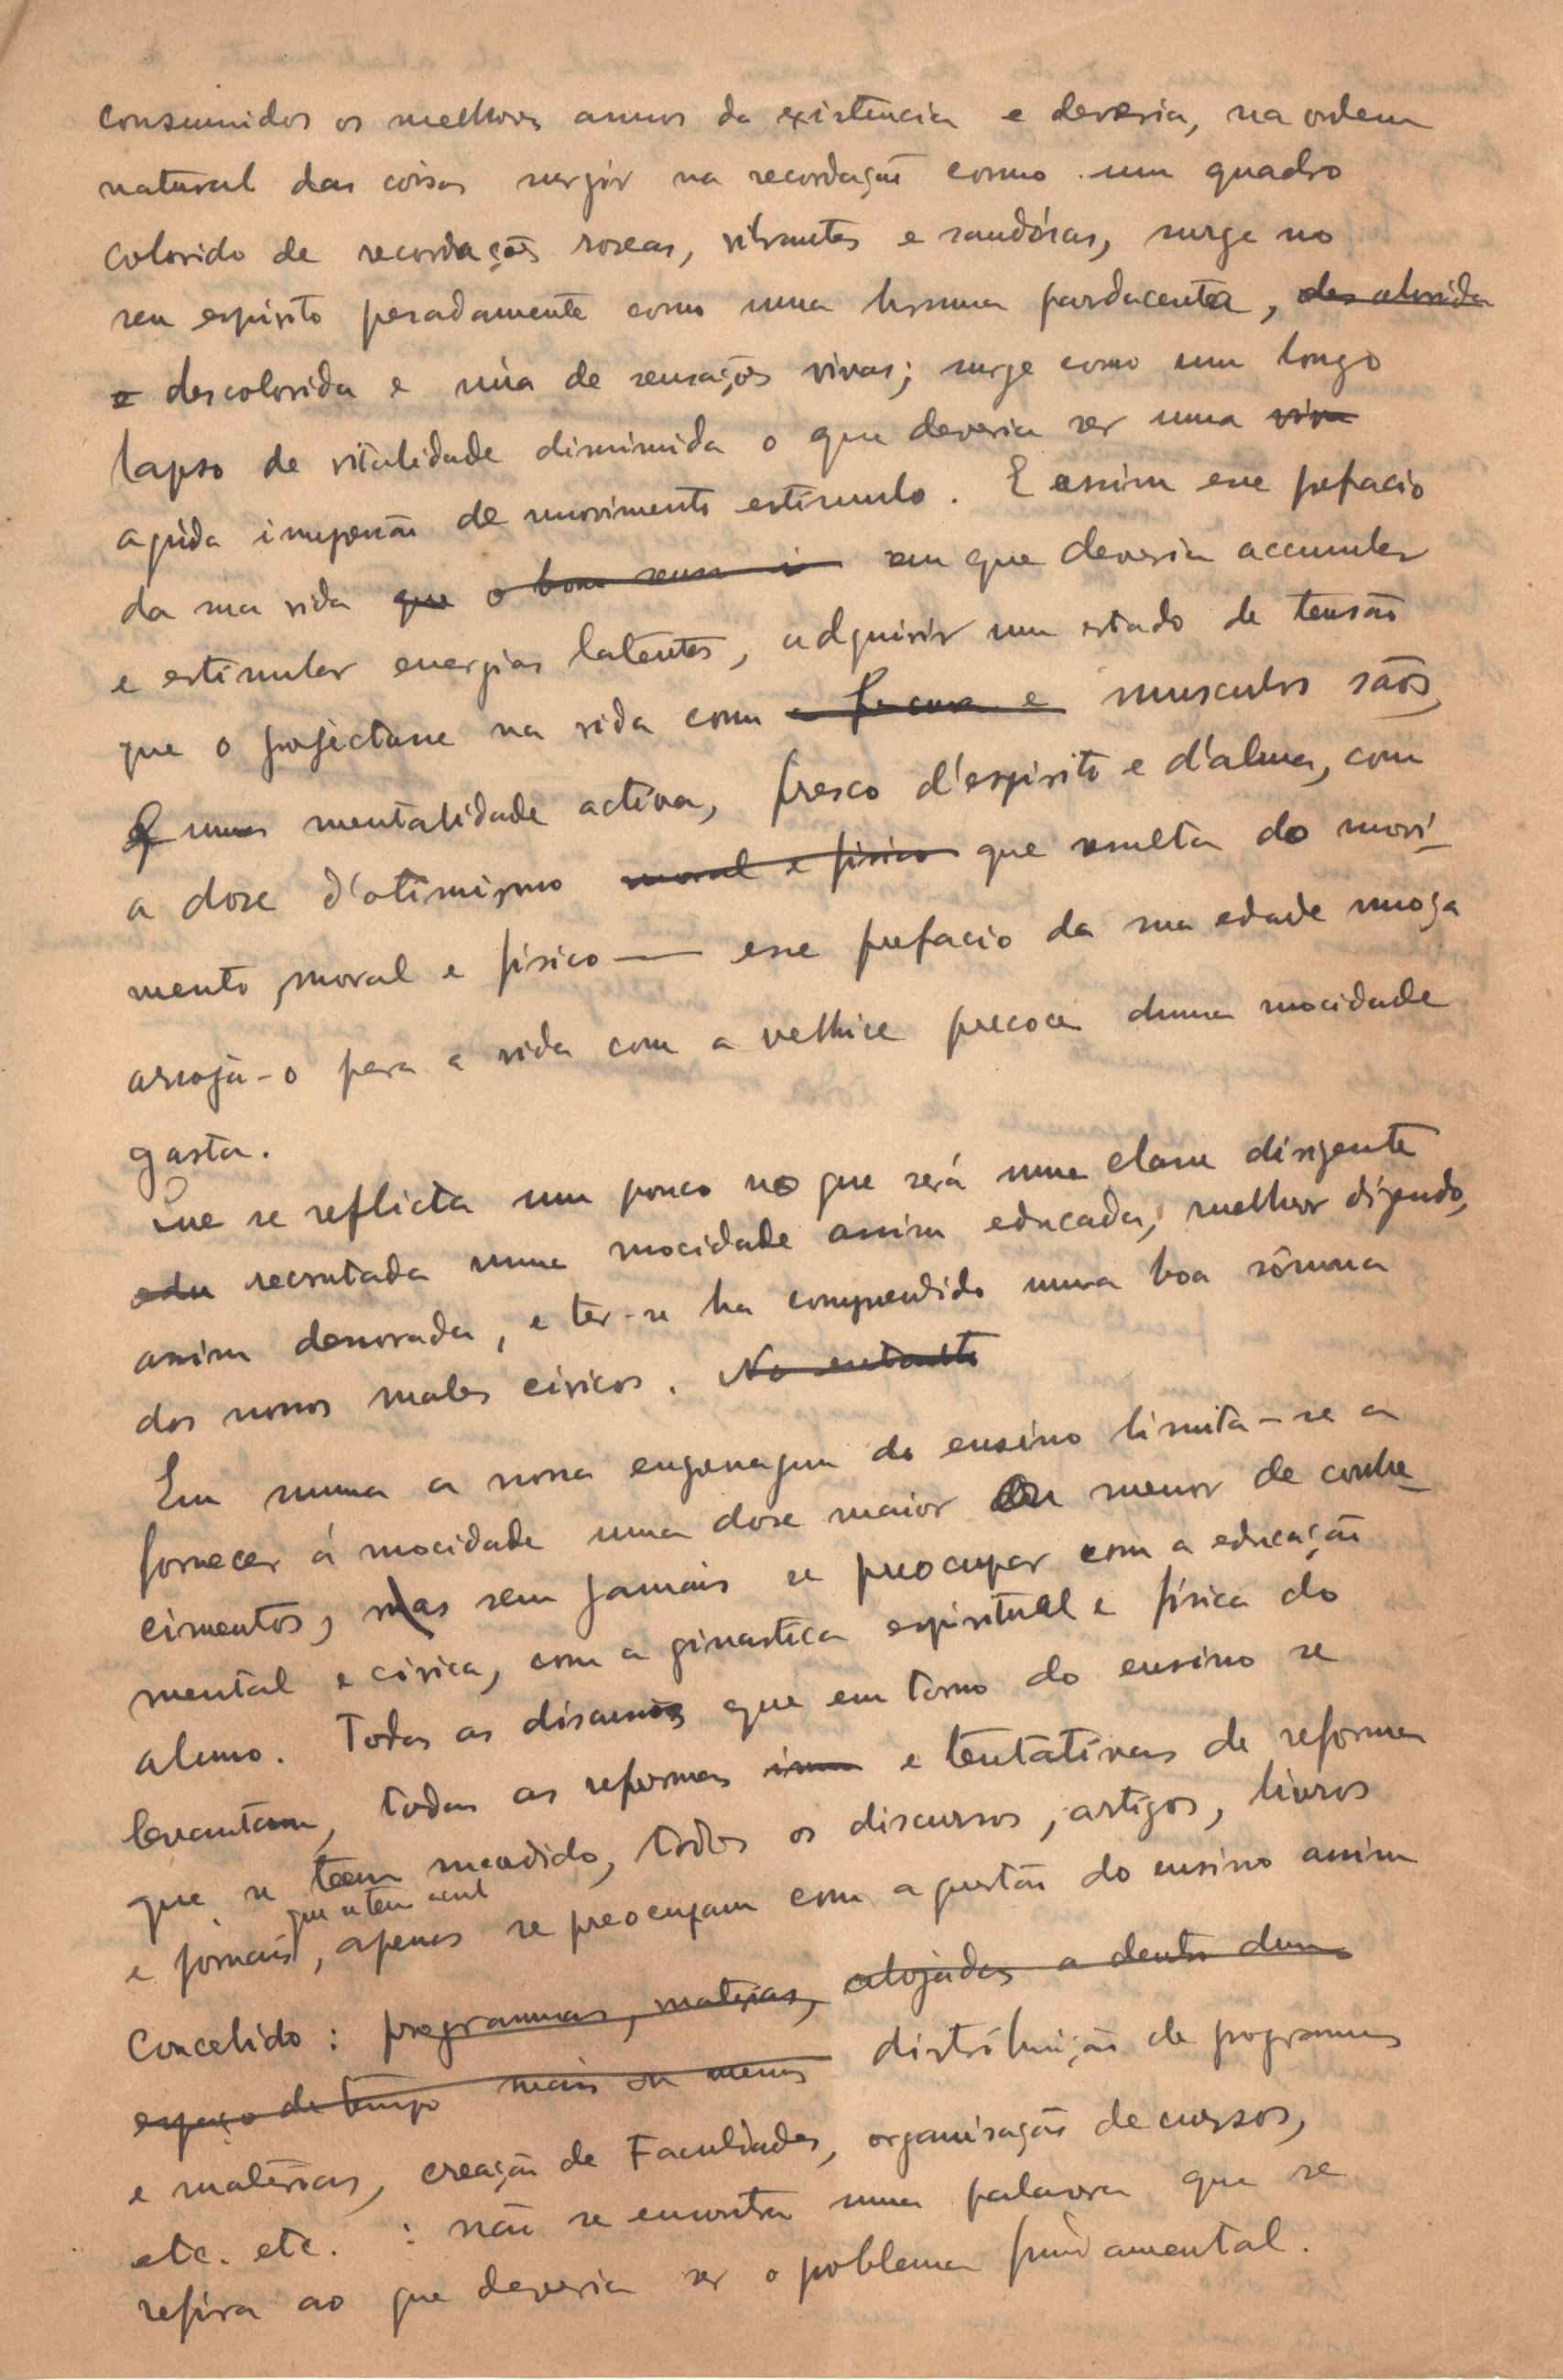 consumidos os melhores annos da existencia e deveria, na ordem
natural das coisas surgir na recordação como um quadro
colorido de recordações roseas, vibrantes e saudósas, surge no
seu espirito pesadamente como uma bruma pardacenta, descolorida
e descolorida e núa de sensações vivas; surge como um longo
lapso de vitalidade diminuida o que deveria ser uma viva
apida impressão de movimento estimulo. E assim esse prefacio
da sua vida que o bom senso i em que deveria accumular
e estimular energias latentes, adquirir um estado de tensão
que o projectasse na vida com musculos sãos,
uma mentalidade activa, fresco d'espirito e d'alma, com
a dose d'otimismo moral e fisico que resulta do movi-
mento moral e fisico — esse prefacio da sua edade moça
arroja-o para a vida com a velhice precoce duma mocidade
gasta.
Que se reflicta um pouco no que será uma classe dirigente
edu recrutada numa mocidade assim educada, melhor dizendo,
assim devorada, e ter-se ha comprendido numa boa sômma
dos nossos males civicos. No entanto
Em summa a nossa engrenagem do ensino limita-se a
fornecer á mocidade uma dose maior ou menor de conhe-
cimentos, mas sem jamais se preocupar com a educação
mental e civica, com a ginastica espiritual e fisica do
alumo. Todas as discussões que em torno do ensino se
levantam, todas as reformas e tentativas de reforma
que se teem sucedido, todos os discursos, artigos, livros
que se tem
e jornais, apenas se preocupam com a questão do ensino assim
concebido: programmas, materias, alojadas a dentro dum
espaço de tempo mais ou menos distribuição de programmas
e materias, creação de Faculdades, organisação de cursos,
etc. etc. : não se encontra uma palavra que se
refira ao que deveria ser o problema fundamental.